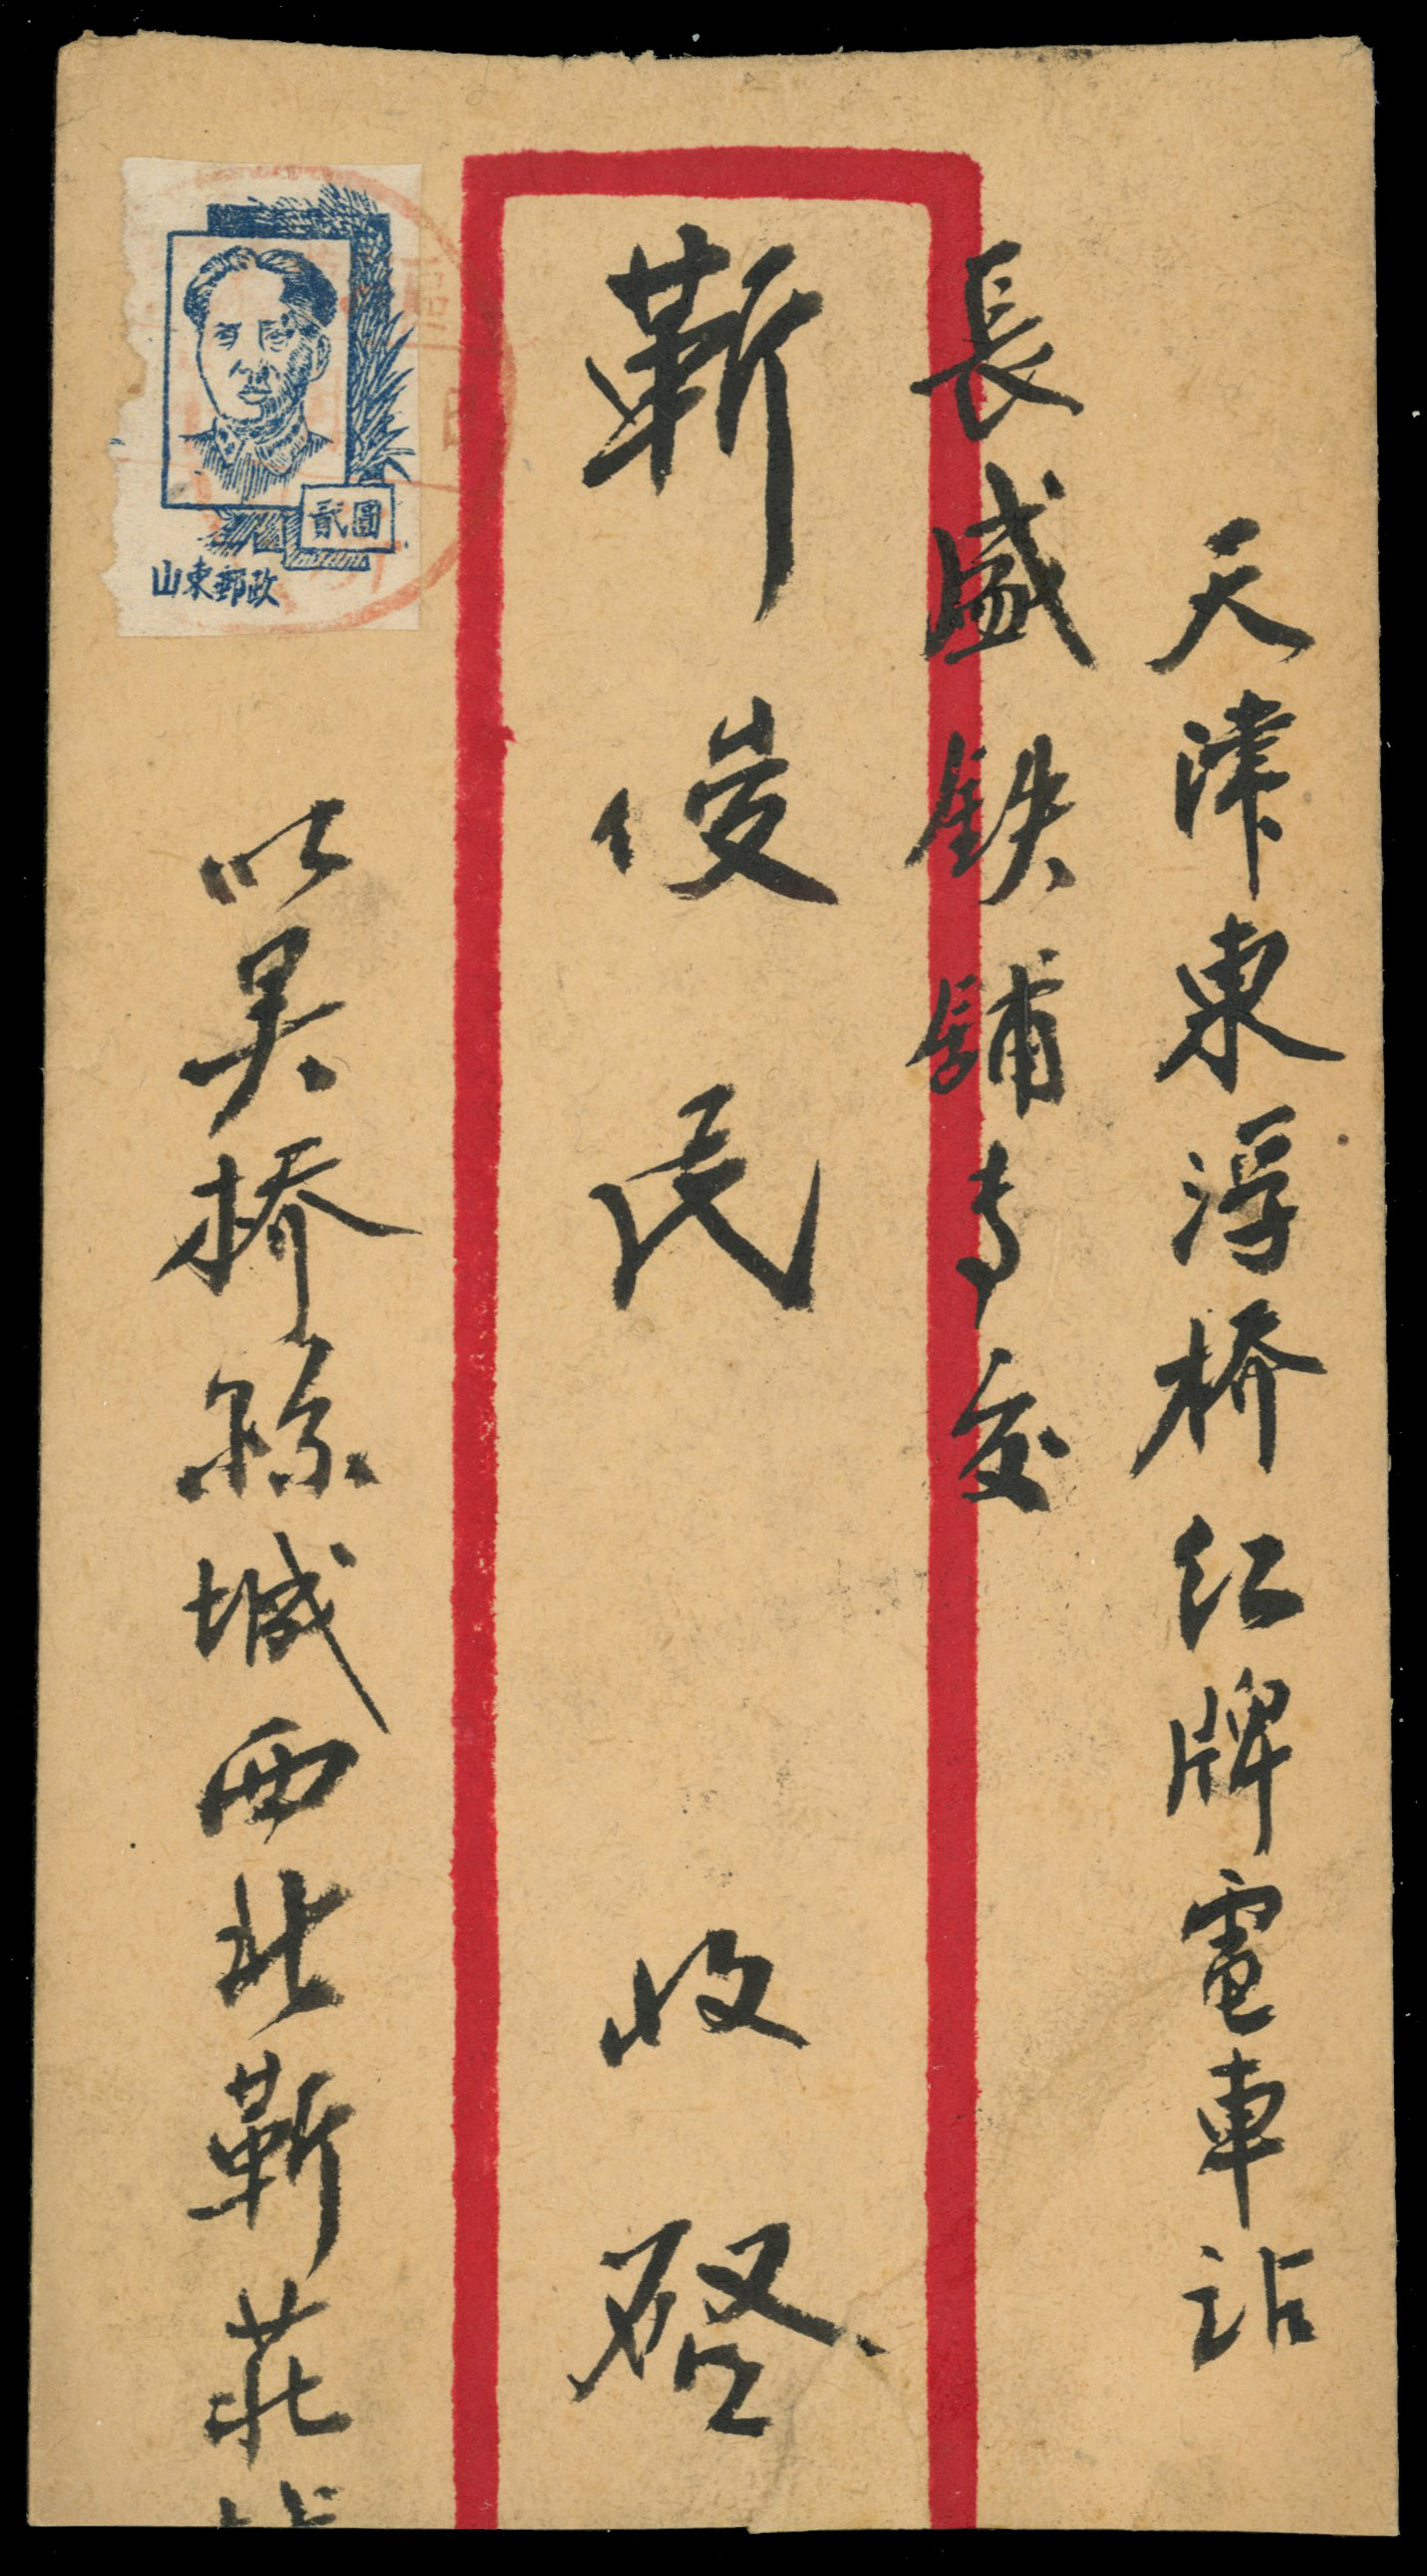 天津東浮橋红牌電車站
長盛鉄鋪專交
靳俊民 收啓
吴橋縣城西北靳莊
貳圓
山東郵政